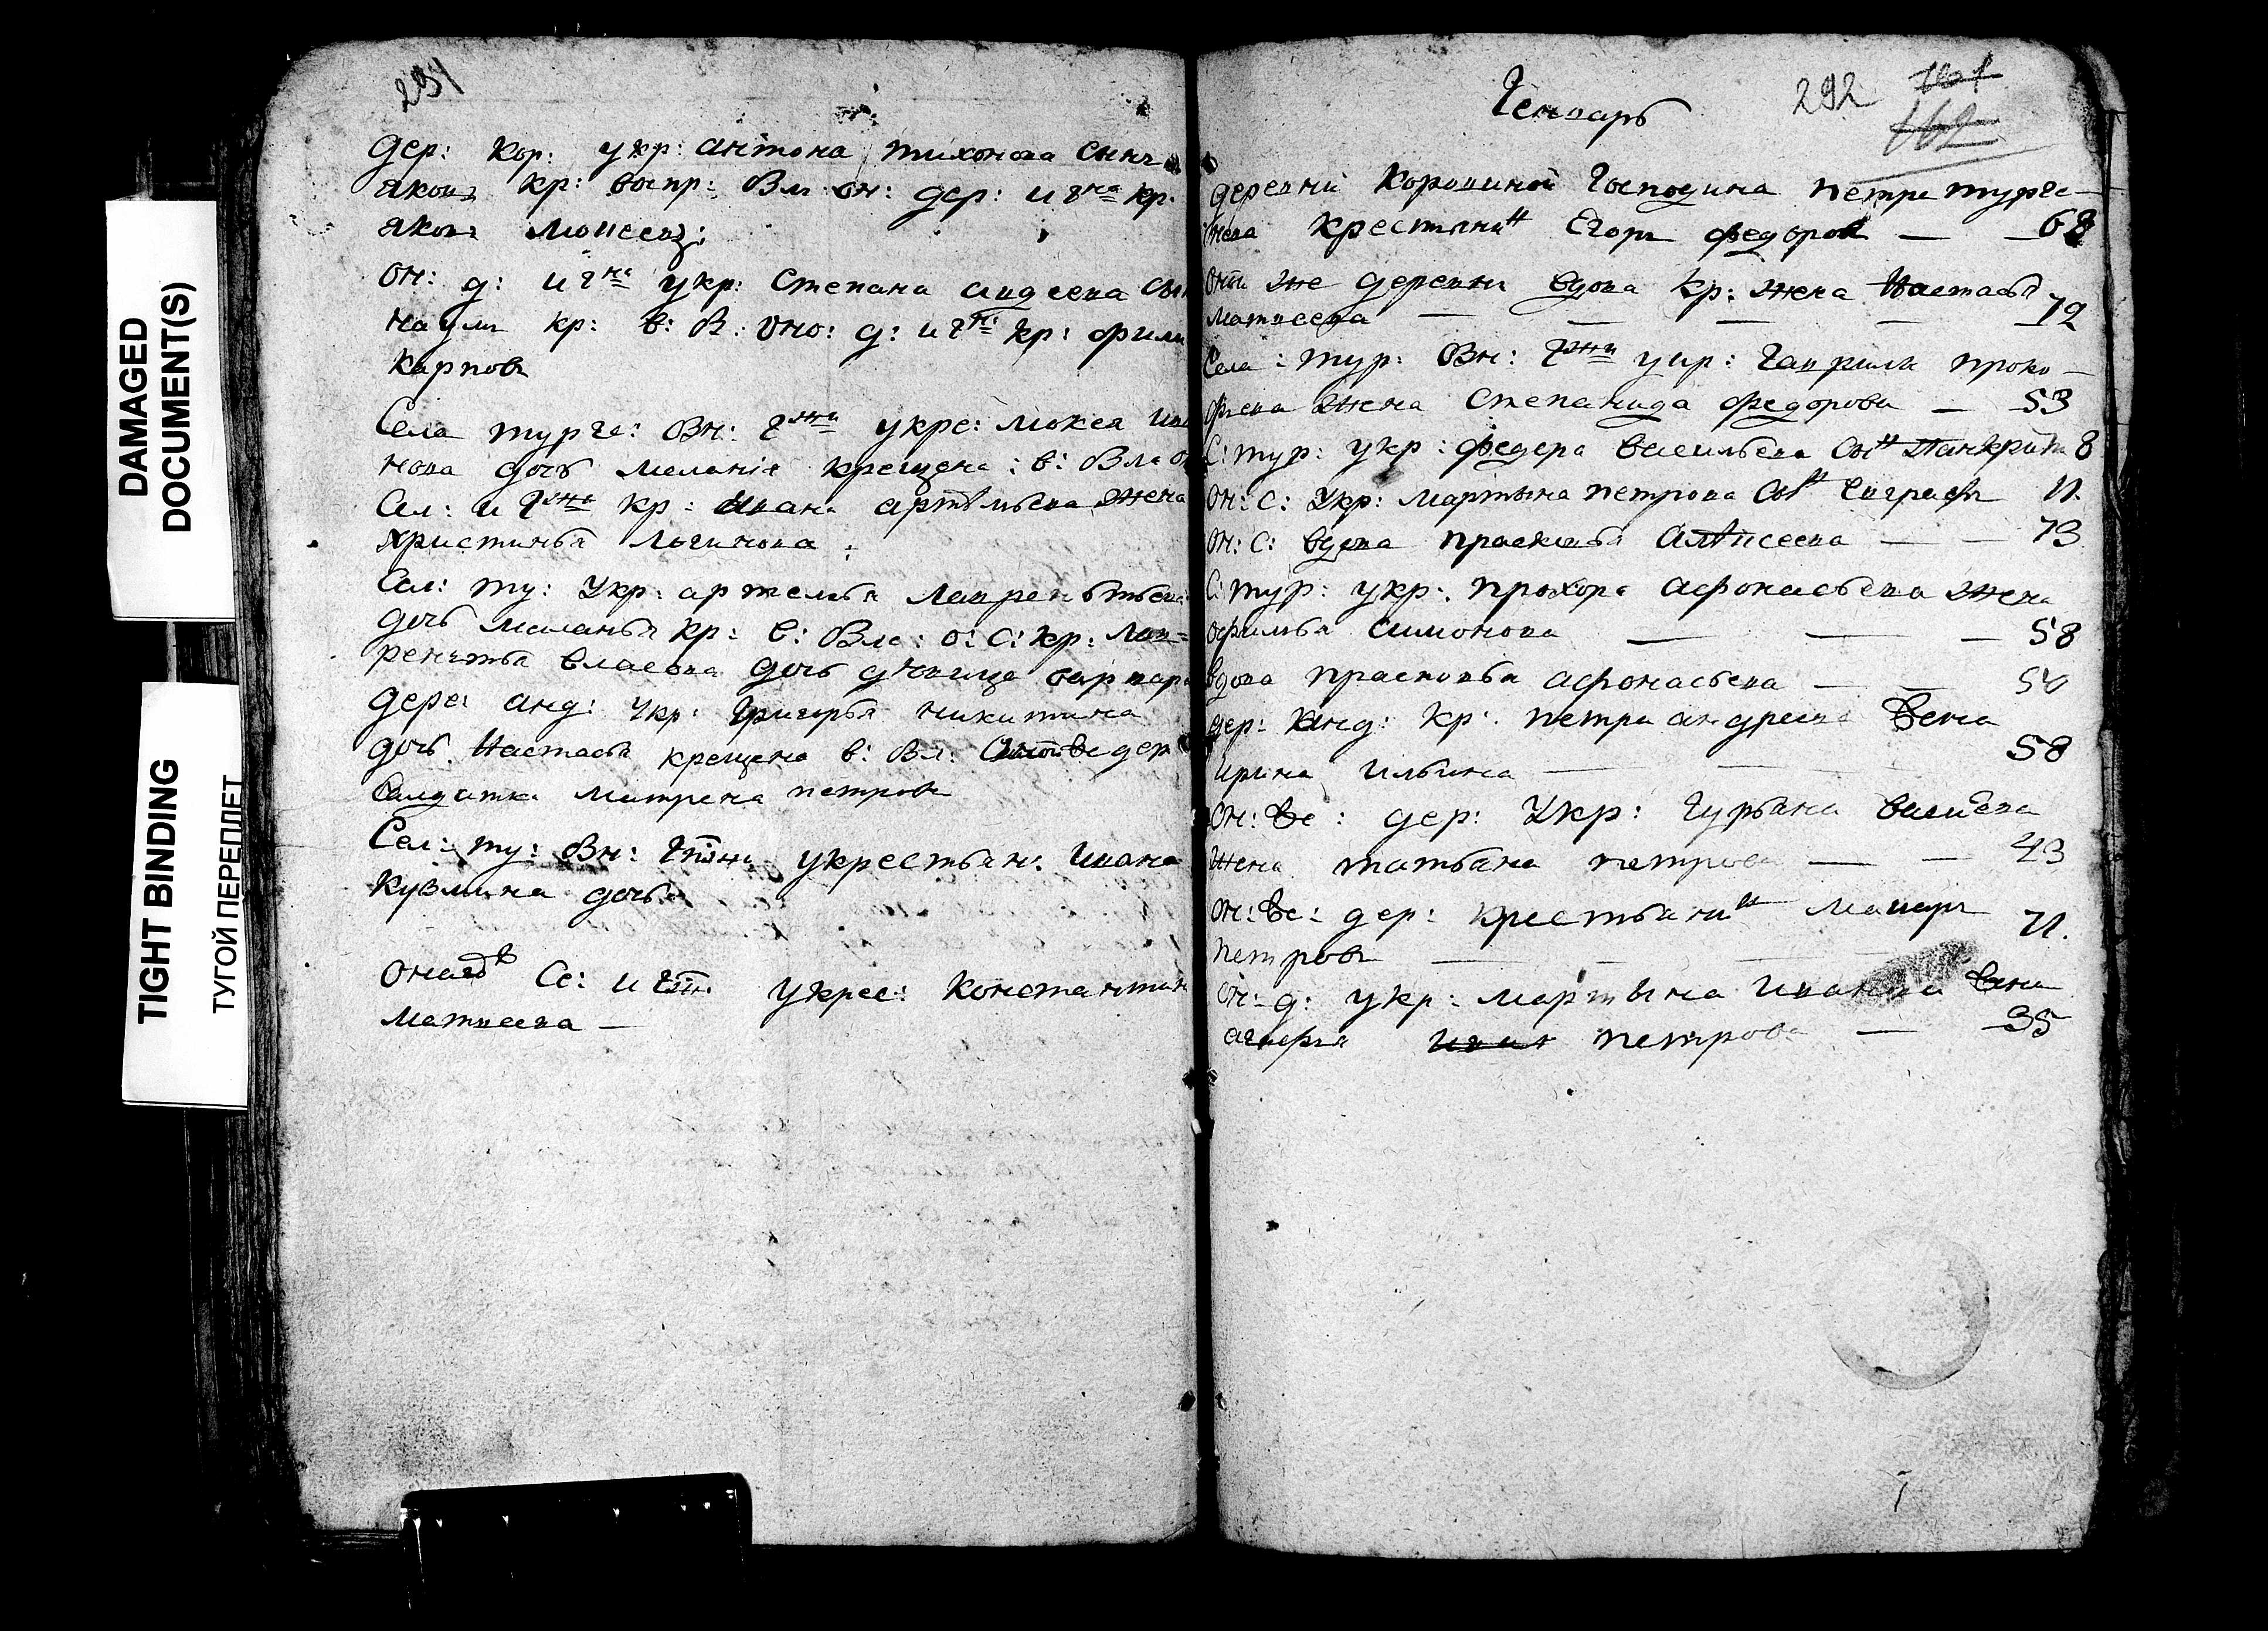 DAMAGED
DOCUMENT(S)
TIGHT BINDING
ТУГОЙ ПЕРЕПЛЕТ
291
дер: кор: укр: антона тихонова сынъ
яковъ кр: воспр: Вл: он: дер: и гна кр:
яковъ моисеевъ:
он: д: и гна укр: степана авдеева сы
наумъ кр: в: В: оно: д: и гна кр: фили
карповъ
Села турге: Вн: гжи укре: мокея ива
нова дочь меланiя крещена: в: Вла
Сел: и гжи кр: ивана артемьева жена
христинья логинова:
Сел: ту: укр: артемья лаврентьева
дочь маланья кр: в: Вла: о: с: кр: лав=
рентья власова дочь девица варвара
дере: анд: укр: григорья никитина
дочь настасья крещена в: Вл: дер
Салдатка матрена петрова
Сел: ту: Вн: гжи укрестьян: ивана
кузмина дочь
Се: и укрес: константин
матвеева —
Генварь
292
деревни Коровиной Господина петра турге—
нева крестянинъ Егоръ федоровъ — — 68
оной же деревни вдова кр: жена Настасья
матвеева — — — — 72
Села: тур: Вн: гжи укр: гаврилы проко—
фьева жена степанида федорова — 53
С: тур: укр: федера васильева сынъ панкратъ 8
он: с: укр: мартына петрова сынъ евграфъ 11.
он: с: вдова прасковья алексеева — — 73
С: тур: укр: прохора афонасьева жена
офимья симонова — — — 58
вдова прасковья афонасьева — — 50
дер: анд: кр: петра андреева жена
ирина ильина — — 58
он: же: дер: укр: гурьяна васильева
жена татьяна петрова — — 43
он: же: дер: крестьянинъ макаръ 71.
петровъ — — —
он: д: укр: мартына иванова жена
петрова — 35